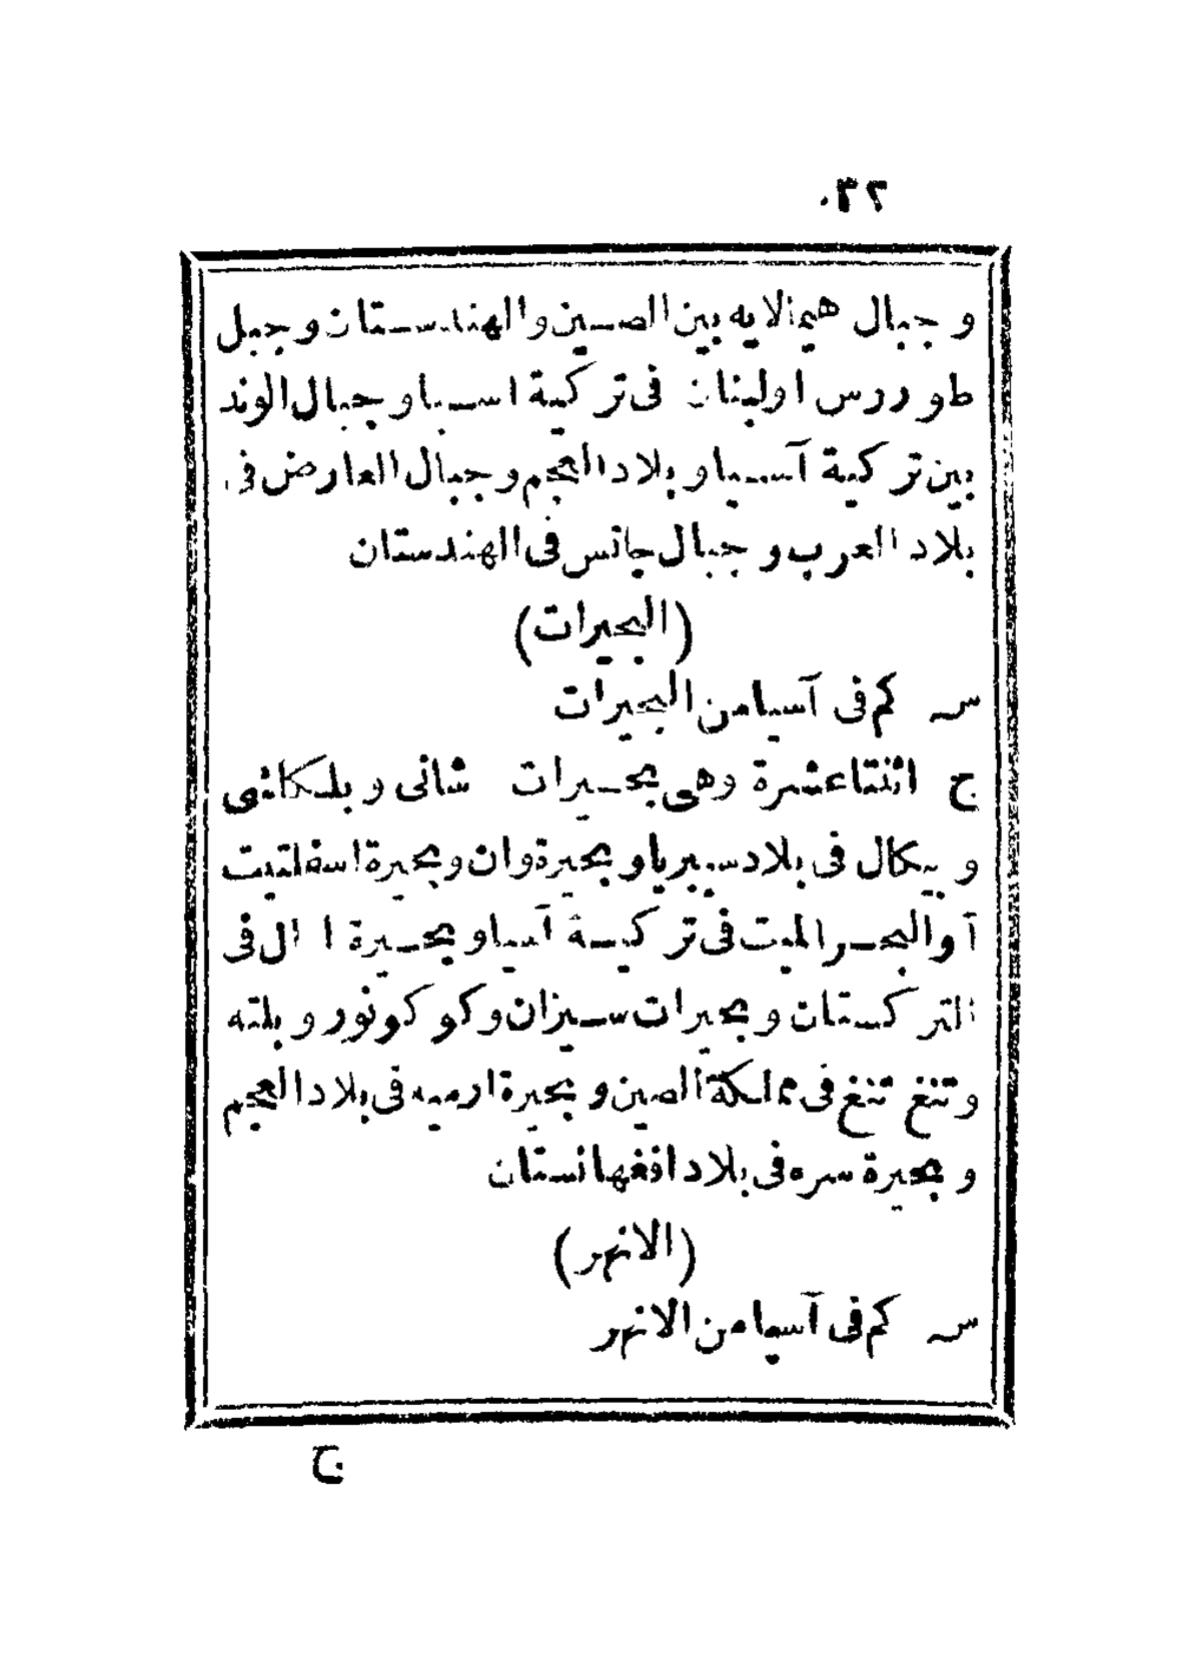 ٣٢
و جبال هيمالايه بين الصين والهندستان وجبل
طوروس اولبنان فى تركية اسيا وجبال الوند
بين تركية آسيا وبلاد العجم وجبال العارض فى
بلاد العرب و جبال جانس فى الهندستان
(البحيرات)
س كم فى آسيا من البحيرات
ج اثنتا عشرة وهى بحيرات شانى و بلكاشى
و بيكال فى بلاد سيبريا و بحيرة وان و بحيرة اسفلتيت
أو البحر الميت فى تركية آسيا و بحيرة ا ال فى
التركستان و بحيرات سيزان وكوكونور و بلته
وتنغ تنغ فى مملكة الصين و بحيرة ارميه فى بلاد العجم
و بحيرة سره فى بلاد افغهانستان
(الانهر)
س كم فى آسيا من الانهر
ج